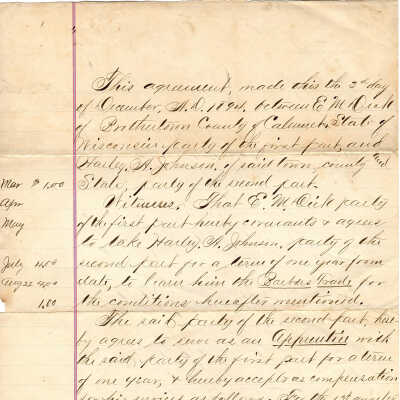 This agreement, made this the 3d day
of December, A.D. 1894, between E. M. Dick
of Brothertown County of Calumet, State of
Wisconsin party of the first part, and
Harley A. Johnson, of said town, county and
State, party of the second part.
Witness. That E. M. Dick party
of the first part hereby covenants & agrees
to take Harley A. Johnson, party of the
second part for a term of one year from
date, to learn him the Barbers Trade for
the conditions hereafter mentioned.
The said party of the second part, here
by agrees to serve as an Apprentice with
the said party of the first part for a term
of one year, & hereby accept as compensation
for his services as follows. For the 1st
Mar $1.00
Apr
May
July
Aug 25
1.00